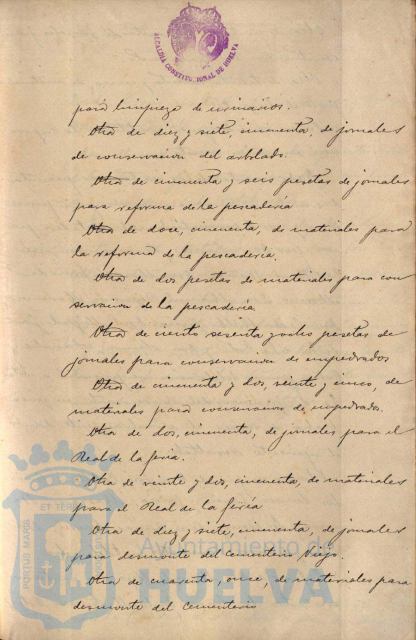 ALCALDÍA CONSTITUCIONAL DE HUELVA
para limpieza de urinarios.
Otra de diez y siete, cincuenta, de jornales
de conservacion del arbolado.
Otra de cincuenta y seis pesetas de jornales
para reforma de la pescadería
Otra de doce, cincuenta, de materiales para
la reforma de la pescadería.
Otra de dos pesetas de materiales para con
servacion de la pescadería
Otra de ciento sesenta y ocho pesetas de
jornales para conservacion de empedrados
Otra de cincuenta y dos, veinte y cinco, de
materiales para conservacion de empedrados.
Otra de dos, cincuenta, de jornales para el
Real de la feria.
Otra de veinte y dos, cincuenta, de materiales
para el Real de la feria
Otra de diez y siete, cincuenta, de jornales
para desmonte del cementerio Viejo.
Otra de cuarenta, once, de materiales para
desmonte del cementerio
PORTUS MARIS
ET TERRE
Ayuntamiento de
HUELVA